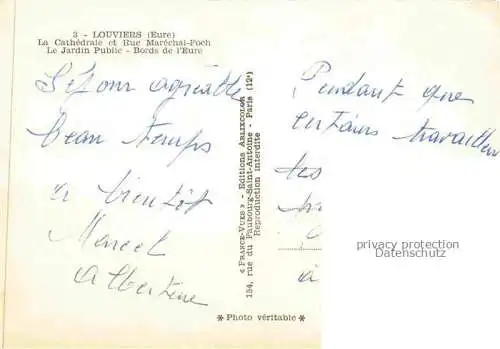 3 - LOUVIERS (Eure)
La Cathédrale et Rue Maréchal-Foch
Le Jardin Public - Bords de l'Eure
Séjour agréable
beau temps
a bientôt
Marcel
Albertine
« FRANCE-VUES » - Editions ARLIXCOLOR
154, rue du Faubourg-Saint-Antoine - Paris (12e)
Reproduction interdite
Pendant que
certains travaillent
les
à
privacy protection
Datenschutz
* Photo véritable *